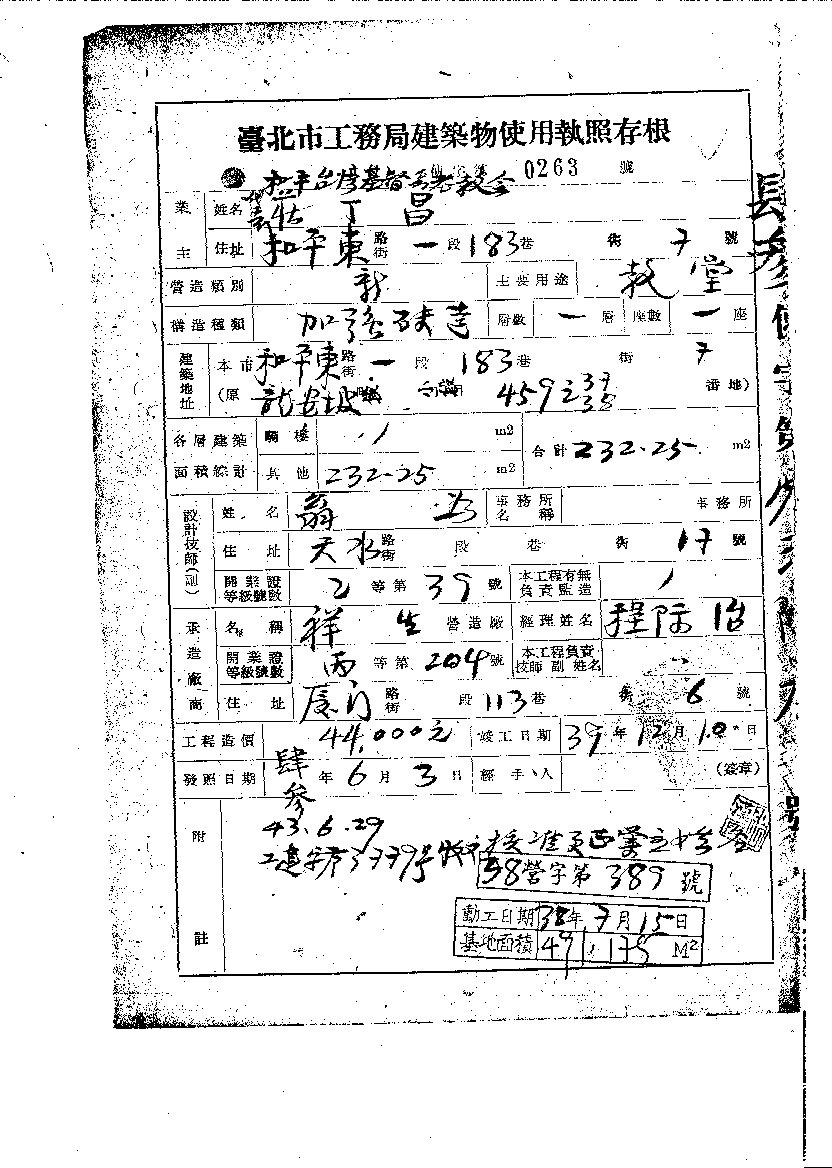 臺北市工務局建築物使用執照存根
0263 號
和平台灣基督長老教會
業主 姓名 莊丁昌
住址 和平東 路街 一 段 183 巷 街 7 號
營造類別 新 主要用途 教堂
構造種類 加強磚造 層數 一 層 座數 一 座
建築地址 本市 和平東 路街 一 段 183 巷 街 7 號
(原 龍安坡 459之39 38 番地)
各層建築面積綜計 騎樓 m2 合計 232.25 m2
其他 232.25 m2
設計技師(副) 姓名 翁 事務所名稱 事務所
住址 天水 路街 段 巷 街 17 號
開業證等級號數 乙 等第 39 號 本工程有無負責監造
承造廠商 名稱 祥生 營造廠 經理姓名 程際治
開業證等級號數 丙 等第 204 號 本工程負責技師副姓名
住址 廈門 路街 段 113 巷 街 6 號
工程造價 44,000元 竣工日期 39 年 12 月 10 日
發照日期 肆參 年 6 月 3 日 經手人 (簽章)
附註
43.6.29
38營字第 389 號
動工日期 38年 7月 15日
基地面積 491.175 M²